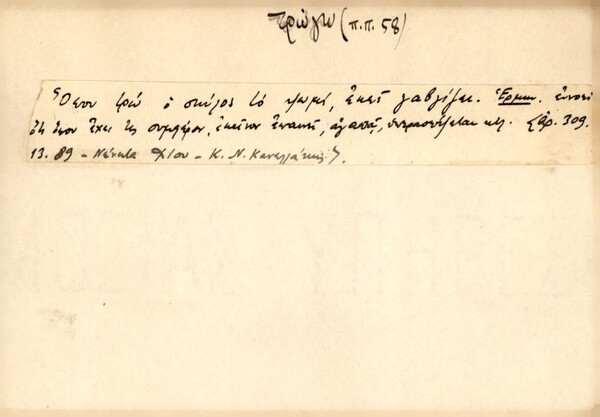 τρώγω (π.π. 58)
Ὅπου τρώ ὁ σκύλος τὸ ψωμί, ἐκεῖ γαβγίζει. Ἑρμην. ἐννοεῖ
ὅτι ὅπου ἔχει τις συμφέρον, ἐκεῖνον ἐπαινεῖ, ἀγαπᾷ, ὑπερασπίζεται κτλ. Ἀρ. 309.
13. 89 – Νένητα Χίου – Κ. Ν. Κανελλάκης